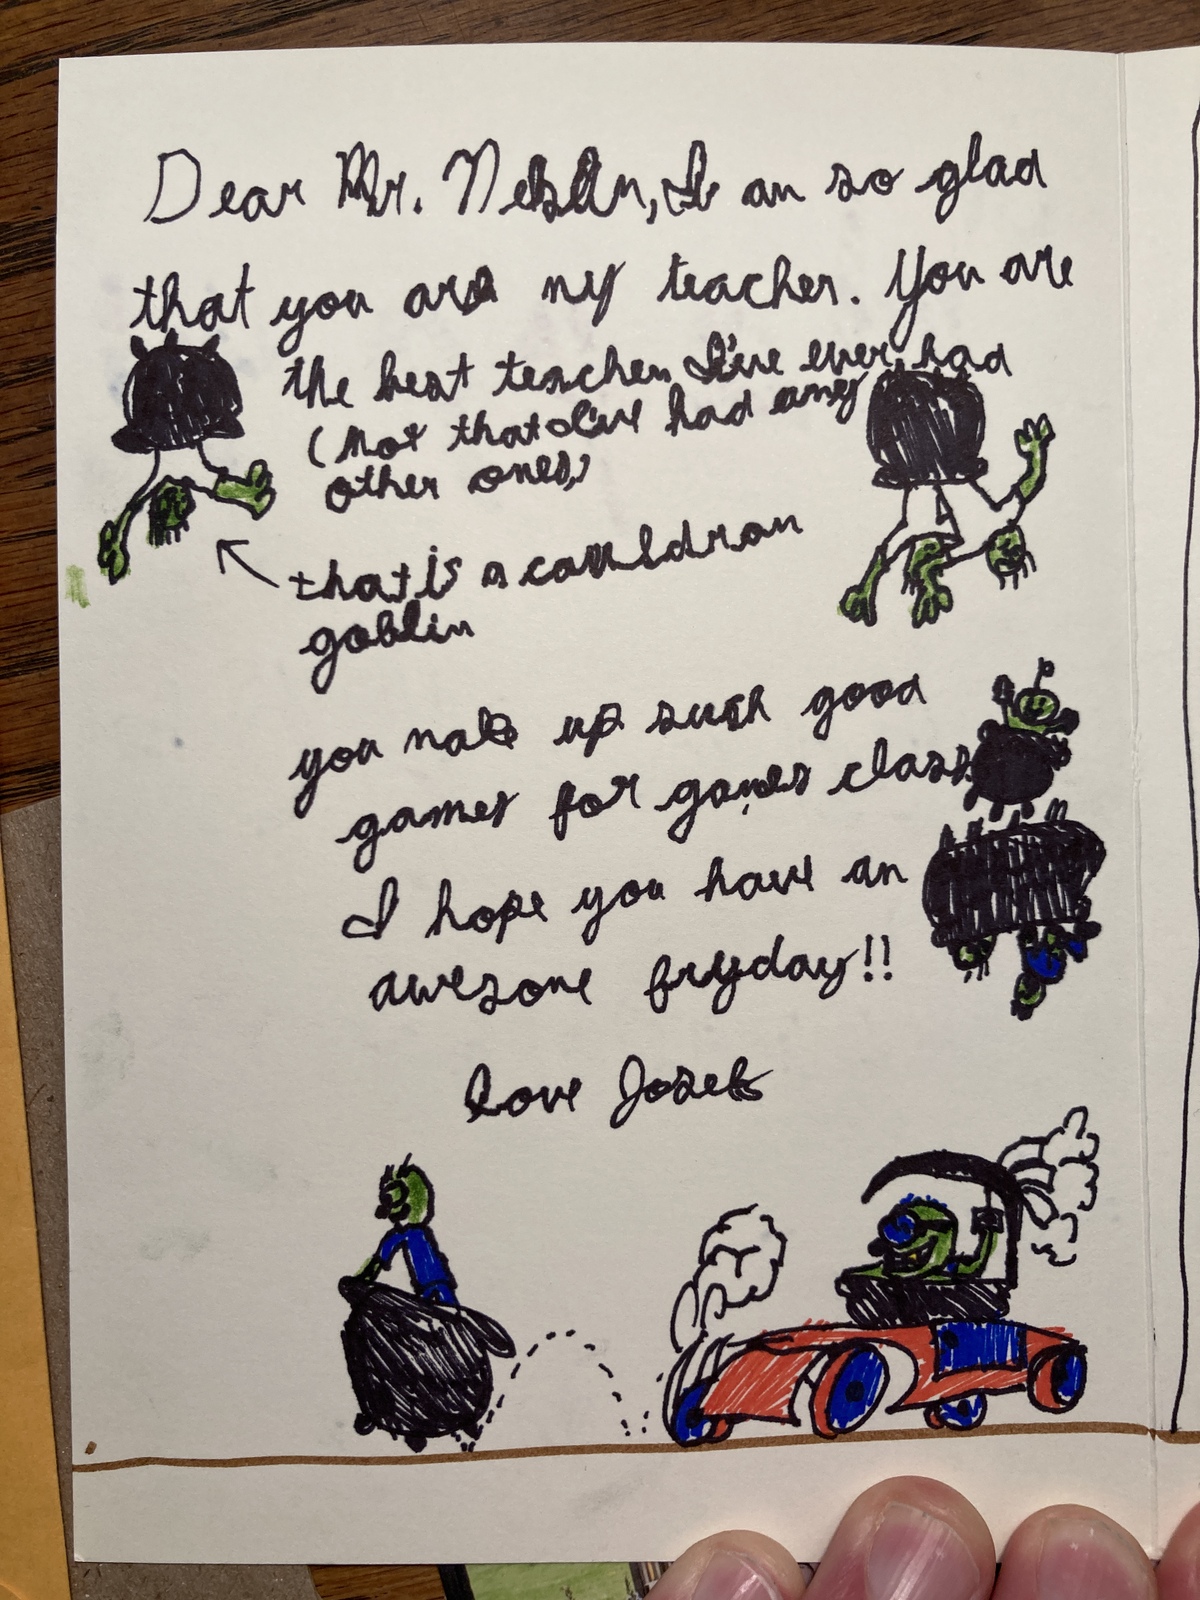 Dear Mr. Neslin, I am so glad
that you are my teacher. You are
the best teacher I've ever had
(Not that I've had any
other ones)
that is a cauldron
goblin
you make up such good
games for games class
I hope you have an
awesome fryday!!
love Josef